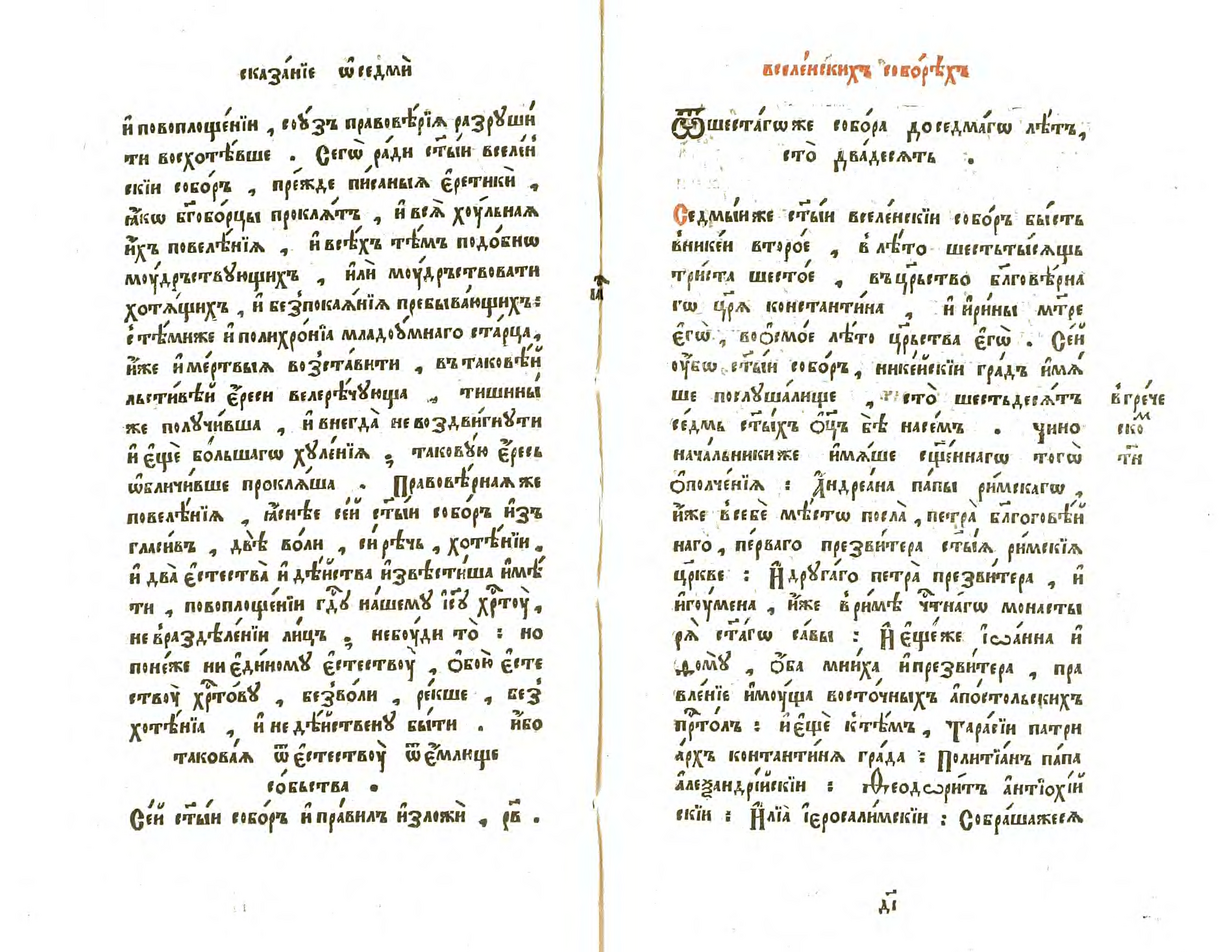 сказа́нїе ѡ҆ седмѝ
и҆ повоплоще́нїи , сою́зъ правовѣ́рїѧ разрꙋши́
ти восхотѣ́вше . Сегѡ̀ ра́ди ст҃ы́и вселе́н
скїи собо́ръ , пре́жде пи́саныѧ є҆ретикѝ ,
ꙗ҆́кѡ бг҃обо́рцы проклѧ́тъ , и҆ всѧ̀ хоу́льнаѧ
и҆́хъ повелѣ́нїѧ , и҆ всѣ́хъ тѣ́мъ подо́бнѡ
моу́дръствꙋющихъ , и҆лѝ моу́дръствовати
хотѧ́щихъ , и҆ без̾покаѧ́нїѧ пребыва́ющихъ :
с тѣ́миже и҆ полихро́нїа младоу́мнаго ста́рца ,
и҆́же и҆ ме́ртвыѧ воз̾ста́вити , въ таковѣ́й
льсти́вѣй є҆́реси велерѣ́чꙋюща , тишины̀
же полꙋчи́вша , и҆ внегда̀ не воз̾дви́гнꙋти
и҆ є҆щѐ бо́льшагѡ хꙋле́нїѧ ; такову́ю є҆́ресь
ѡ҆бличи́вше проклѧ́ша . Правовѣ́рнаѧ же
повелѣ́нїѧ , ꙗ҆́снѣе се́й ст҃ы́и собо́ръ и҆з̾
гласи́въ , двѣ̀ во́ли , си́рѣчь , хотѣ́нїи ,
и҆ два̀ є҆стества̀ и҆ дѣ́йства и҆звѣсти́ша и҆мѣ́
ти , повоплоще́нїи гдⷭ҇ꙋ на́шемꙋ і҆с҃ꙋ хрⷭ҇тоу̀ ,
не в раздѣле́нїи ли́цъ ; небоу́ди то̀ : но
поне́же ни є҆ди́номꙋ є҆стествоу̀ , ѻ҆бою̀ є҆сте
ствоу̀ хрⷭ҇то́вꙋ , без̾во́ли , ре́кше , без̾
хотѣ́нїа , и҆ не дѣ́йственꙋ бы́ти . и҆́бо
такова́ѧ ѿ є҆стествоу̀ ѿе́млище
со́бьства .
Се́й ст҃ы́и собо́ръ и҆ пра́вилъ и҆зложѝ , рв҃ .
вселе́ньскихъ собо́рѣхъ
Ѿ шеста́гѡ же собо́ра до седма́гѡ лѣ́тъ ,
сто̀ два́десѧть .
Седмы́и же ст҃ы́и вселе́нскїи собо́ръ бы́сть
в нике́и второ́е , в лѣ́то шестьты́сѧщь
три́ста шесто́е , въ црⷭ҇тво бл҃говѣ́рна
гѡ цр҃ѧ̀ константи́на , и҆ и҆ри́ны мт҃ре
є҆гѡ̀ , во ѻ҆смо́е лѣ́то црⷭ҇тва є҆гѡ̀ . Се́й
оу҆́бѡ ст҃ы́и собо́ръ , нике́йскїи гра́дъ и҆мѧ́
ше послꙋша́лище , сто̀ шестьдесѧ́тъ
се́дмь ст҃ы́хъ ѻ҆ц҃ъ бѣ̀ на се́мъ . чино
нача́льники же и҆мѧ́ше сщ҃е́ннагѡ тогѡ̀
ѻ҆полче́нїѧ : А҆ндреа́на па́пы ри́мскагѡ ,
и҆́же в себѐ мѣ́стѡ посла̀ , петра̀ бл҃гоговѣ́й
наго , пе́рваго презви́тера ст҃ы́ѧ ри́мскїѧ
цр҃кве : И҆ дрꙋга́го петра̀ презви́тера , и҆
и҆гоу́мена , и҆́же в ри́мѣ чⷭ҇тнагѡ монасты
рѧ̀ ст҃а́гѡ са́вы : И҆ є҆ще́же і҆ѡа́нна и҆
ѳомꙋ̀ , ѻ҆́ба мни́ха и҆ презви́тера , пра
вле́нїе и҆моу́ща восто́чныхъ а҆по́стольскихъ
прⷭ҇то́лъ : и҆ є҆щѐ к тѣ́мъ , Тара́сїи патри
а́рхъ контанти́нѧ гра́да : Политїа́нъ па́па
а҆леѯандрі́йскїи : Ѳеодѡри́тъ а҆нтїохі́й
скїи : И҆лїа̀ і҆єросали́мскїи : Собра́шажесѧ
в гре́че
скоⷨ
ст҃и
дı҃